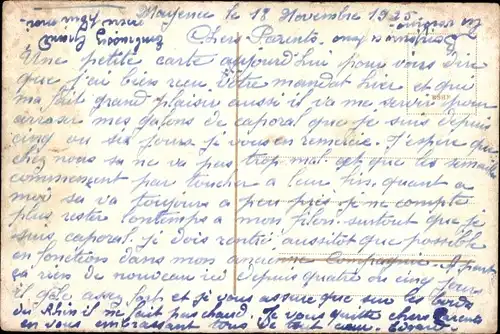 Mayence le 18 Novembre 1925
Chers Parents
Une petite carte aujourd'hui pour vous dire
que j'ai bien reçu Votre mandat hier et qui
ma fait grand plaisir aussi il va me servir pour
arroser mes galons de caporal que je suis depuis
cinq ou six jours Je vous en remercie. J'espère que
chez nous sa ne va pas trop mal et que les semailles
commencent par toucher a leur fin, quant a
moi sa va toujours a peu près je ne compte
plus rester longtemps a mon filon surtout que je
suis caporal je dois rentré aussitôt que possible
en fonctions dans mon ancienne Compagnie. A part
ça rien de nouveau ici depuis quatre ou cinq jours
il gèle assez fort et je vous assure que sur les bords
du Rhin il ne fait pas chaud. Je vous quitte chers Parents
en vous embrassant tous de tout cœur